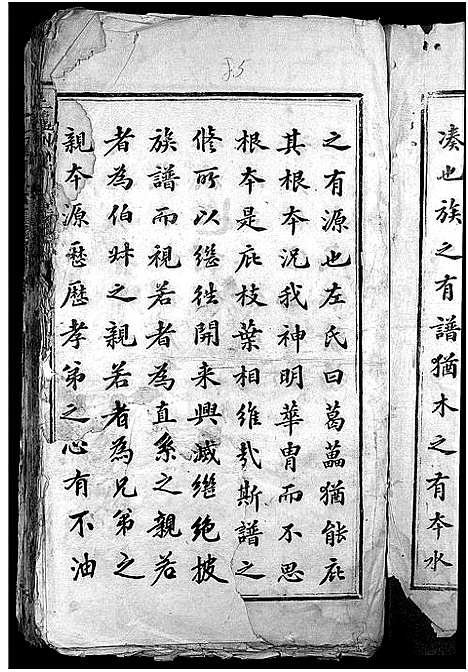 85
湊也族之有譜猶木之有本水
之有源也左氏曰葛藟猶能庇
其根本況我神明華胄而不思
根本是庇枝葉相維哉斯譜之
修所以继徃開来興滅继絶披
族譜而視若者為直系之親若
者為伯叔之親若者為兄弟之
親本源歷歷孝弟之心有不油